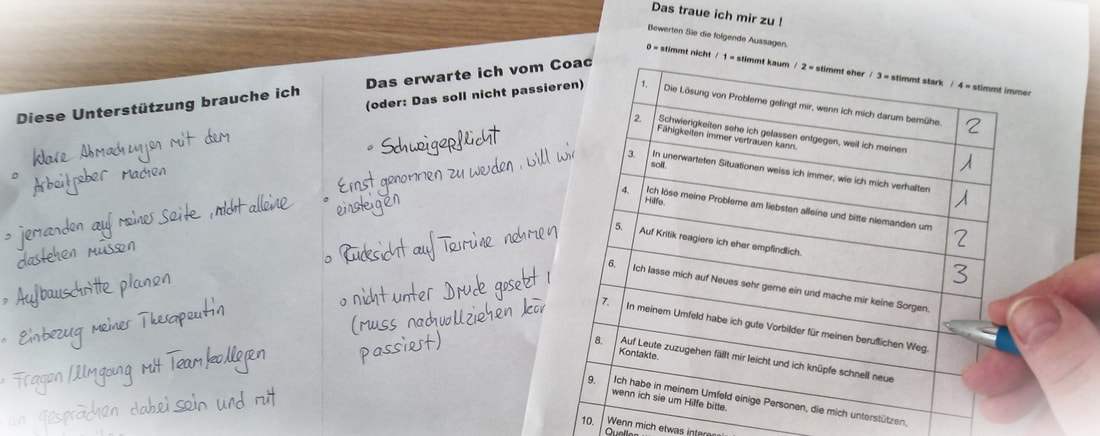 Diese Unterstützung brauche ich
◦ klare Abmachungen mit dem
Arbeitgeber machen
◦ jemanden auf meiner Seite, nicht alleine
dastehen müssen
◦ Aufbauschritte planen
◦ Einbezug meiner Therapeutin
◦ Fragen/Umgang mit Teamkollegen
gesprächen dabei sein und mit
Das erwarte ich vom Coac
(oder: Das soll nicht passieren)
• Schweigepflicht
• Ernst genommen zu werden, will wir
einsteigen
◦ Rücksicht auf Termine nehmen
◦ nicht unter Druck gesetzt
(muss nachvollziehen kön
passiert)
Das traue ich mir zu !
Bewerten Sie die folgende Aussagen.
0 = stimmt nicht / 1 = stimmt kaum / 2 = stimmt eher / 3 = stimmt stark / 4 = stimmt immer
1. Die Lösung von Probleme gelingt mir, wenn ich mich darum bemühe. 2
2. Schwierigkeiten sehe ich gelassen entgegen, weil ich meinen
Fähigkeiten immer vertrauen kann. 1
3. In unerwarteten Situationen weiss ich immer, wie ich mich verhalten
soll. 1
4. Ich löse meine Probleme am liebsten alleine und bitte niemanden um
Hilfe. 2
5. Auf Kritik reagiere ich eher empfindlich. 3
6. Ich lasse mich auf Neues sehr gerne ein und mache mir keine Sorgen.
7. In meinem Umfeld habe ich gute Vorbilder für meinen beruflichen Weg.
8. Auf Leute zuzugehen fällt mir leicht und ich knüpfe schnell neue
Kontakte.
9. Ich habe in meinem Umfeld einige Personen, die mich unterstützen,
wenn ich sie um Hilfe bitte.
10. Wenn mich etwas
Quellen